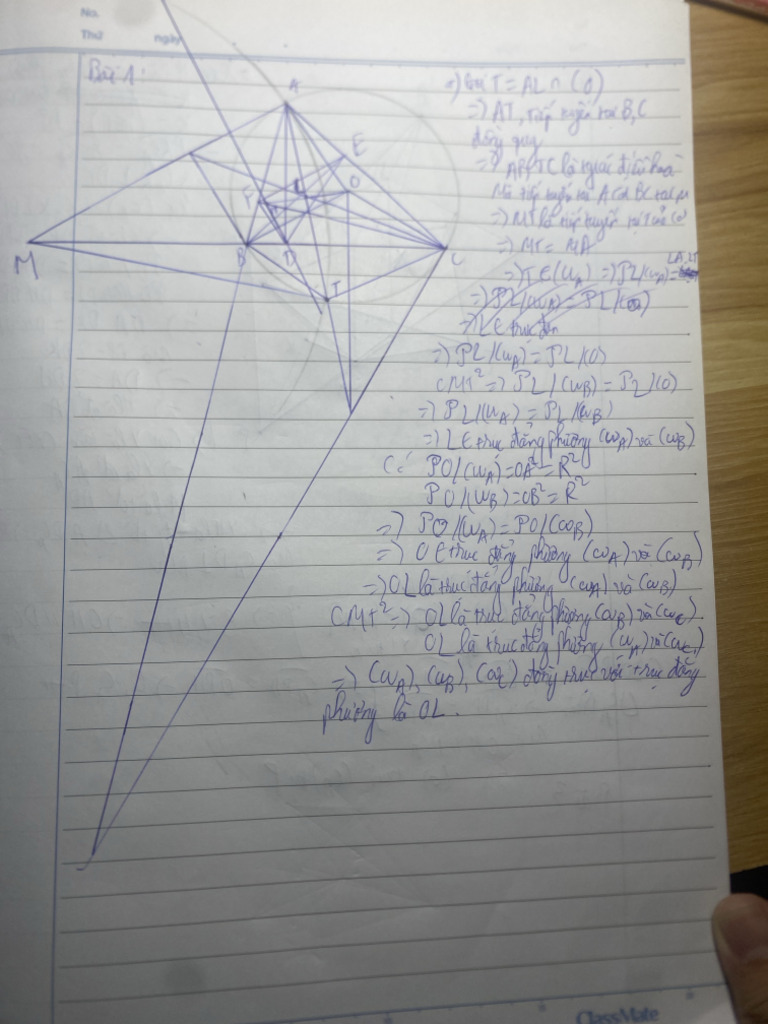 No.
Thứ ngày
Bài 1:
A
E
F
L
O
M
B
D
C
T
=> Gọi T = AL ∩ (O)
=> AT, tiếp tuyến tại B, C
đồng quy
=> ABTC là tứ giác điều hoà
Mà tiếp tuyến tại A cắt BC tại M
=> MT là tiếp tuyến tại T của (O)
=> MT = MA
=> T ∈ (ω_A) => PL/(ω_A) = LA.LT
=> PL/(ω_A) = PL/(O)
=> L ∈ trục đẳn
=> PL/(ω_A) = PL/(O)
CMT² => PL/(ω_B) = PL/(O)
=> PL/(ω_A) = PL/(ω_B)
=> L ∈ trục đẳng phương (ω_A) và (ω_B)
Có PO/(ω_A) = OA² = R²
PO/(ω_B) = OB² = R²
=> PO/(ω_A) = PO/(ω_B)
=> O ∈ trục đẳng phương (ω_A) và (ω_B)
=> OL là trục đẳng phương (ω_A) và (ω_B)
CMT² => OL là trục đẳng phương (ω_B) và (ω_C).
OL là trục đẳng phương (ω_A) và (ω_C)
=> (ω_A), (ω_B), (ω_C) đồng trục với trục đẳng
phương là OL.
ClassMate